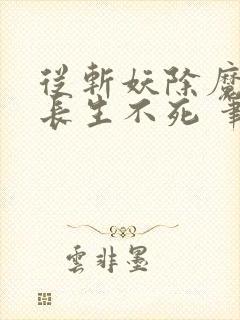 從斬妖除魔
長生不死 筆
雲非墨